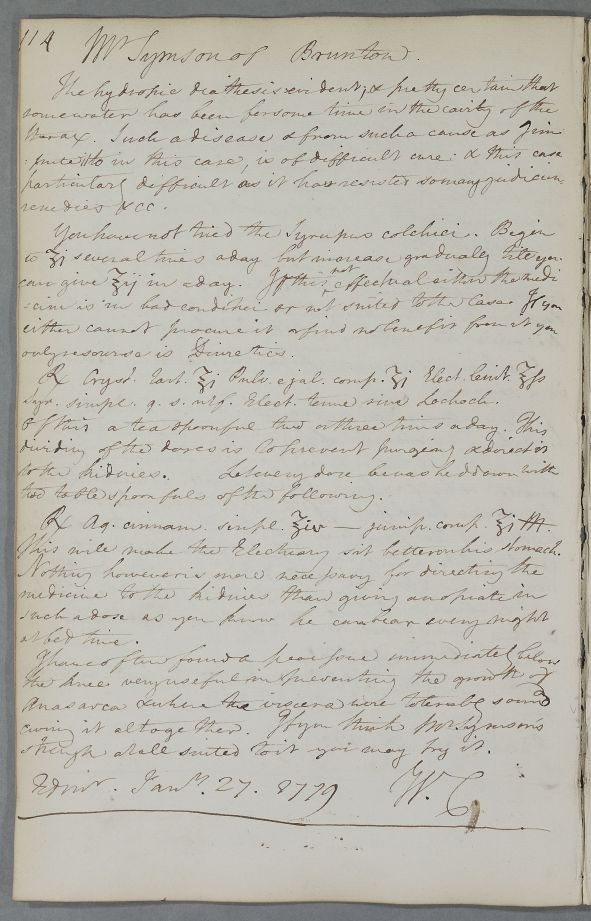 114
Mr Symson of Brunton.
The hydropic diathesis evident, & pretty certain that
some water has been for some time in the cavity of the
thorax. Such a disease & from such a cause as
in this case, is of difficult cure: & this case
particularly difficult as it has resisted so many judicious
remedies &cc.
You have not tried the Syrupus colchici. Begin
to ʒj several times a day but increase gradually till you
can give ʒij in a day. If this not effectual either the medi
=cine is in bad condition or not suited to the Case. If you
either cannot procure it or find no benefit from it your
only resourse is Diuretics.
℞ Cryst. Tart. ℥j Pulv. e jal. comp. ʒj Elect. lenit. ℥fs
Syr. simpl. q. s. ut f. Elect. tenue sive Lochoch.
Of this a tea spoonful two or three times a day. This
dividing of the doses is to prevent purging & direct it
to the kidnies. Let every dose be washed down with
two table spoonfuls of the following.
℞ Aq. cinnam. simpl. ℥iv — junip. comp. ℥j M.
This will make the Electuary sit better on his stomach.
Nothing however is more necessary for directing the
medicine to the kidnies than giving an opiate in
such a dose as you know he can bear every night
at bed time.
I have often found a pea issue immediately below
the knee very useful in preventing the growth of
Anasarca & when the viscera were tolerably sound
curing it altogether. If you think Mr Symson's
strength at all suited to it you may try it.
Edinr. Janry. 27. 1779 W. C